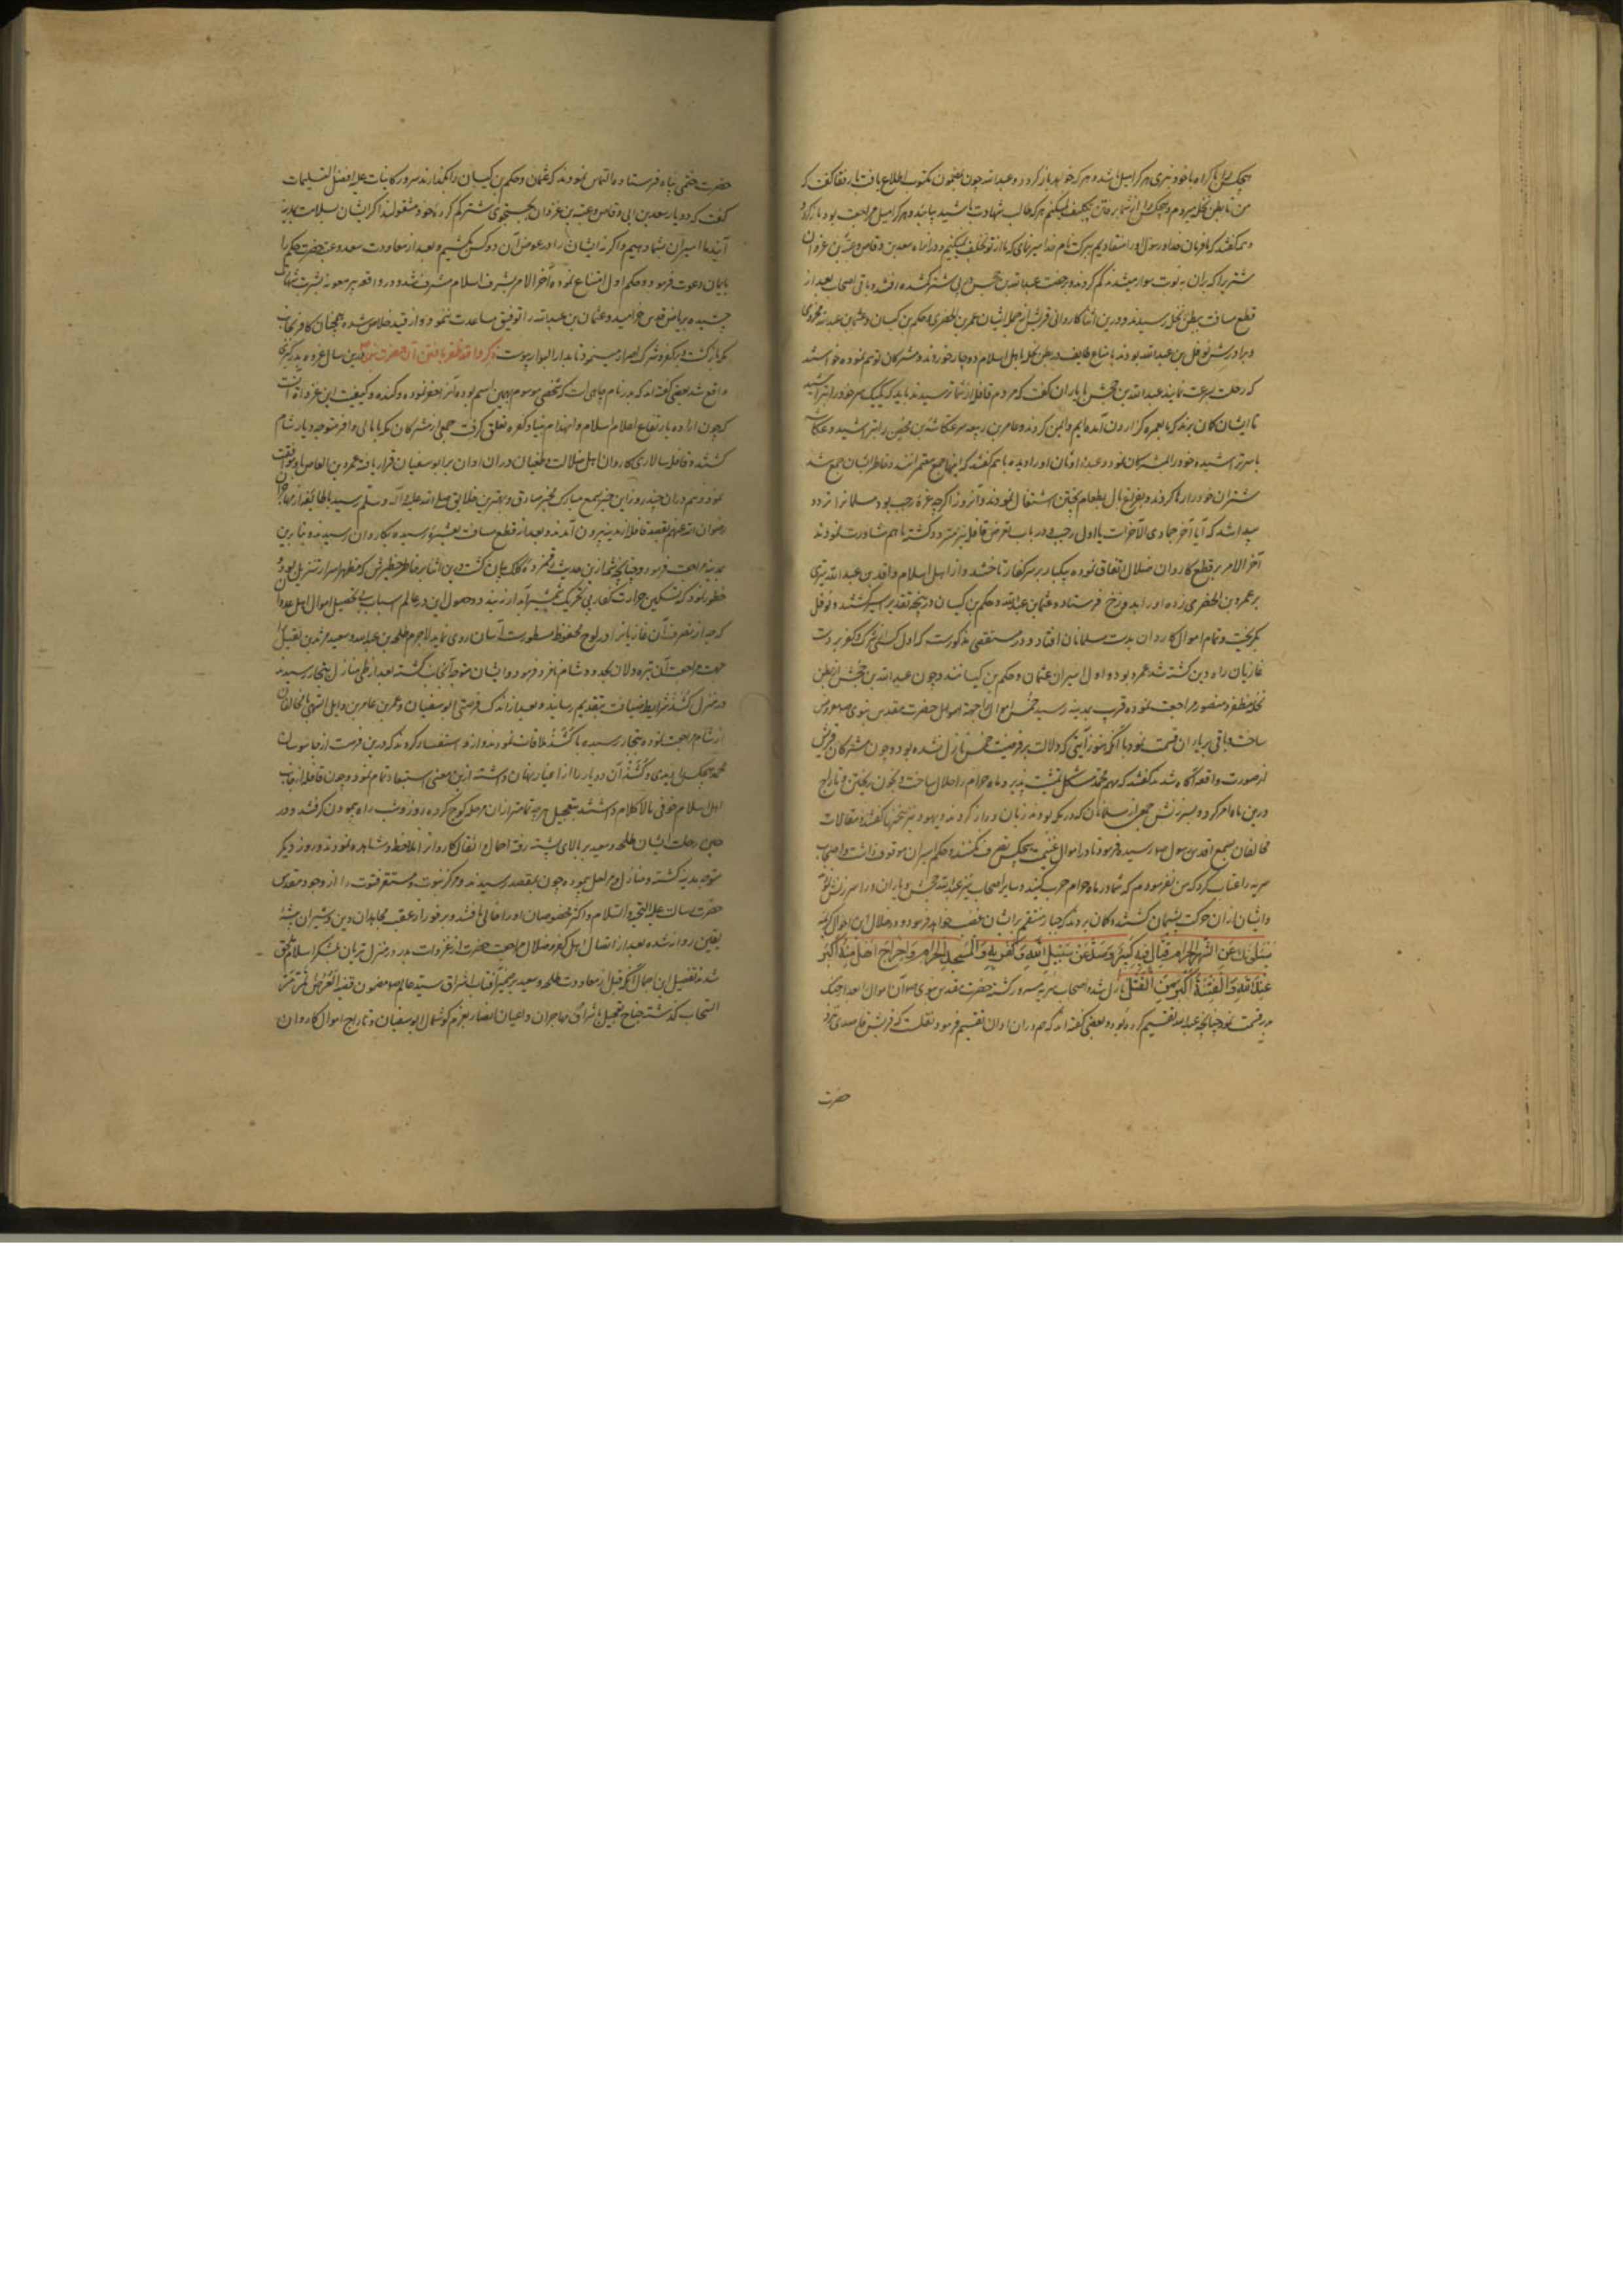 هیچکس را باکراه با خود نبری هر کرا میل باشد همراه خود ببر و عبدالله چون بر مضمون مکتوب اطلاع یافت با رفقا گفت که
من تا بطن نخله میروم و هیچکس را از شما برفتن تکلیف نمیکنم هر که طالب شهادت باشد بیاید و هر کرا میل مراجعت بود باز گردد
همه گفتند که ما فرمان خدا و رسول او را منقادیم ببرکت نام خدا سیر نمای که ما از تو تخلف نمیکنیم و در اثنا راه سعد بن وقاص و عتبه بن غزوان
شتریرا که بران بنوبت سوار میشدند گم کردند و برخصت عبدالله بن جحش در پی شتر گمشده رفتند و باقی اصحاب بعد از
قطع مسافت ببطن نخله رسیدند و درین اثنا کاروانی قریش که از جمله ایشان عمرو بن الحضرمی و حکم بن کیسان و عثمان بن عبدالله مخزومی
و برادرش نوفل بن عبدالله بودند با متاع طایف در بطن نخله باهل اسلام دوچار خوردند و مشرکان توهم نموده خواستند
که رحلت بسرعت نمایند عبدالله بن جحش با یاران گفت که مردم قافله از شما ترسیدند باید که یک کس سر خود را بتراشد
تا ایشان گمان برند که ما بعمره گزاردن آمده ایم و ایمن گردند و عامر بن ربیعه سر عکاشه بن محصن را بتراشید و عکاشه
با سر تراشیده خود را بمشرکان نمود و عبده اوثان او را دیده باهم گفتند که اینها جمع معتمرانند و خاطر ایشان جمع شد
شتران خود را رها کردند و بفراغ بال بطعام پختن اشتغال نمودند و آنروز اگرچه غره رجب بود مسلمانرا تردد
پیدا شد که آیا آخر جمادی الآخر است یا اول رجب و در باب تعرض قافله نیز متردد گشته باهم مشاورت نمودند
آخر الامر بر قطع کاروان ضلال اتفاق نموده بیکبار بر سر کفار تاختند و از اهل اسلام واقد بن عبدالله تیری
بر عمرو بن الحضرمی زده او را بدوزخ فرستاد و عثمان بن عبدالله و حکم بن کیسان در پنجه تقدیر اسیر گشتند و نوفل
بگریخت و تمام اموال کاروان بدست مسلمانان افتاد و در مستقصی مذکورست که اول کسی از مشرکان که بر دست
غازیان راه دین کشته شد عمرو بود و اول اسیران عثمان و حکم بن کیسانند و چون عبدالله بن جحش از بطن
نخله مظفر و منصور مراجعت نموده قرب بمدینه رسید خمس اموال را جهة حضرت مقدس نبوی
ساخته و باقی بر یاران قسمت نمود با آنکه هنوز آیتی که دلالت بر فرضیت خمس نازل نشده بود و چون مشرکان قریش
از صورت واقعه آگاه شدند گفتند که مهم محمد مشکل تمشیت پذیرد و ماه حرام را حلال ساخت و بخون ریختن و تاراج
درین ماه امر کرد و بسرزنش جمعی از مسلمانان که در مکه بودند زبان دراز کردند و یهود نیز سخنها گفتند و مقالات
مخالفان بسمع اقدس رسول رسیده فرمود تا در اموال غنیمت هیچکس تصرف نکنند و حکم اسیران موقوف داشت و اصحاب
سریه را عتاب کرد که من نفرموده ام که شما در ماه حرام حرب کنید و سایر اصحاب نیز عبدالله جحش و یاران او را سرزنش نمودند
و ایشان ازان حرکت پشیمان گشتند و گمان بردند که جبار منتقم بر ایشان غضب خواهد فرمود و در خلال این احوال کریمه
یسئلونک عن الشهر الحرام قتال فیه کبیر وصد عن سبیل الله وکفر به والمسجد الحرام واخراج اهله منه اکبر
عند الله والفتنة اکبر من القتل نازل شده اصحاب سریه مسرور گشتند حضرت مقدس نبوی آن اموال را بعد از جنگ
بدر قسمت نمود چنانچه عبدالله تقسیم کرده بود و بعضی گفته اند که هم دران اوان تقسیم فرمود نقلست که قریش
حضرت
حضرت ختمی پناه فرستاده التماس نمودند که عثمان و حکم بن کیسان را بگذارند سرور کاینات علیه افضل التسلیمات
گفت که دو یار سعد بن ابی وقاص و عتبه بن غزوان بجستجوی شتر گم کرده خود مشغولند اگر ایشان بسلامت بمدینه
آیند ما اسیران شما دهیم و اگر نه ایشان را در عوض آن دو کس بکشیم و بعد از معاودت سعد و عتبه حضرت حکم را
بایمان دعوت فرموده و حکم اول امتناع نموده آخر الامر بشرف اسلام مشرف شد و در واقعه بیر معونه شربت شهادت
چشیده بریاض قدس خرامید و عثمان بن عبدالله را توفیق مساعدت ننمود و از قید خلاص شده همچنان کافر بجانب
مکه بازگشت و بر کفر و شرک اصرار مینمود تا بدار البوار پیوست ذکر واقعه ظفر یافتن آن حضرت درین سال غزوه بدر کبری
واقع شد بعضی گفته اند که بدر نام چاهی است که شخصی موسوم بهمین اسم بوده آنرا حفر نموده و کنده و کیفیت این غزوه آنست
که چون اراده بارتفاع اعلام اسلام و انهدام بنیاد کفره تعلق گرفت جمعی از مشرکان مکه با مالی وافر متوجه دیار شام
گشتند و قافله سالاری کاروان اهل ضلالت و طغیان دران اوان بر ابوسفیان قرار یافته عمرو بن العاص با او موافقت
نمود و هم دران چند روز این خبر بسمع مبارک مخبر صادق و بهترین خلایق صلی الله علیه و آله و سلم رسید با طایفه از مهاجران
رضوان الله عنهم بقصد قافله از مدینه بیرون آمدند و بعد از قطع مسافت بعشیره رسیده بکاروان نرسیدند و بنابرین
بمدینه مراجعت فرمود و چنانچه شمه ازین حدیث رقمزده کلک بیان گشت درین اثنا بر خاطر خطیرش که مظهر اسرار تنزیل بود
خطور نمود که تسکین حرارت کفار بی تحریک شمشیر آبدار نبندد و حصول این در عالم اسباب بی تحصیل اموال اهل عدوان
که بعد از تصرف آن غازیانرا در لوح محفوظ مسطورست آسان روی نماید لاجرم طلحه بن عبیدالله و سعید بن زید بن نفیل را
جهت مراجعت آن تیره دلان بحدود شام نامزد فرمود و ایشان متوجه آنجانب گشته بعد از طی منازل بتجار رسیدند
در منزل کشد شرایط ضیافت بتقدیم رسانیده بعد از اندک فرصتی ابوسفیان و عمرو بن عاص بن وایل السهمی با مخالفان
از شام مراجعت نموده بتجار رسیده با کشد ملاقات نمودند و ازو استفسار کردند که درین فرصت از جاسوسان
محمد هیچکس را دیدی و کشد آن دو یار را از اغیار نهان داشته ازین معنی استبعاد تمام نمود و چون قافله از جانب
اهل اسلام خوفی مالا کلام داشتند بتعجیل هرچه تمامتر ازان مرحله کوچ کرده روز و شب راه پیمودن گرفتند و در
حین رحلت ایشان طلحه و سعید بر بالای پشته رفته احمال و اثقال کاروانرا ملاحظه و مشاهده نمودند و روز دیگر
متوجه مدینه گشتند و منازل و مراحل پیموده چون بمقصد رسیدند مرکز نبوت و مستقر فتوت را از وجود مقدس
حضرت رسالت علیه التحیة والسلام و اکثر مخصوصان او را خالی یافتند و بر فور از عقب مجاهدان دین و شیران بیشه
یقین روان شده بعد از انفصال اهل کفر و ضلال مراجعت حضرت از غزوات بدر در منزل تربان بلشکر اسلام ملحق
شدند تفصیل این اجمال آنکه قبل از معاودت طلحه و سعید بر ضمیر آفتاب اشراق سید عالم مضمون الفرص تمر مر
السحاب گذشته جناح تعجیل با شراف مهاجران و اعیان انصار بعزم گوشمال ابوسفیان و تاراج اموال کاروان